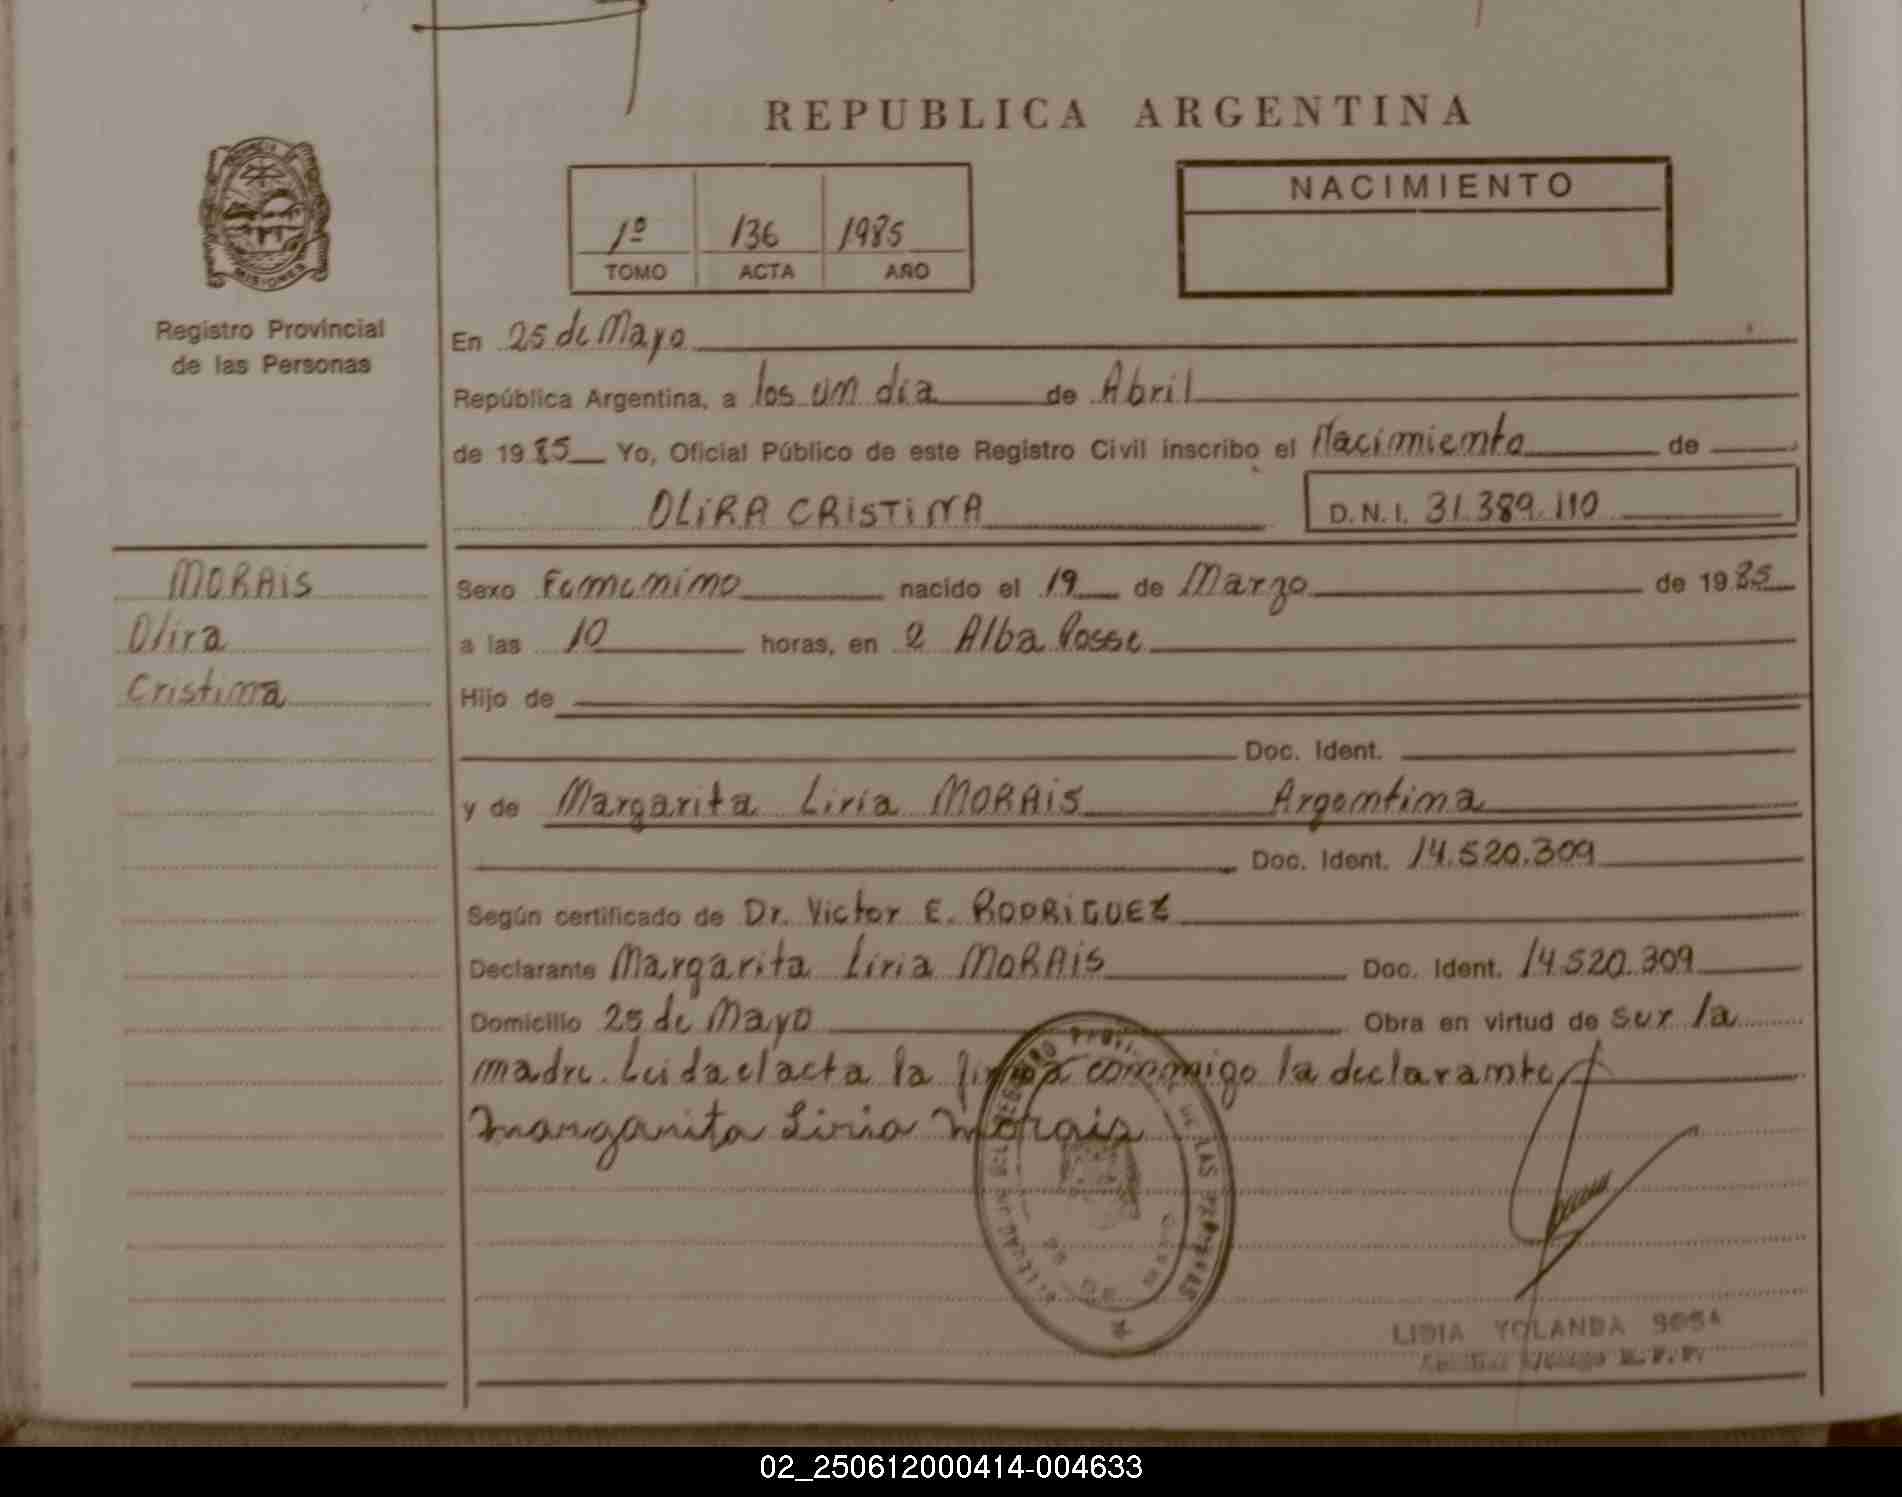 REPUBLICA ARGENTINA
MISIONES
Registro Provincial
de las Personas
1º 136 1985
TOMO ACTA AÑO
NACIMIENTO
En 25 de Mayo
República Argentina, a los un dia de Abril
de 1985 Yo, Oficial Público de este Registro Civil inscribo el Nacimiento de
OLIRA CRISTINA D.N.I. 31.389.110
MORAIS
Olira
Cristina
Sexo Femenino nacido el 19 de Marzo de 1985
a las 10 horas, en 2 Alba Posse
Hijo de
Doc. Ident.
y de Margarita Liria MORAIS Argentina
Doc. Ident. 14.520.309
Según certificado de Dr. Victor E. RODRIGUEZ
Declarante Margarita Liria MORAIS Doc. Ident. 14.520.309
Domicilio 25 de Mayo Obra en virtud de ser la
madre. Leida el acta la firma conmigo la declarante
Margarita Liria Morais
LIDIA YOLANDA SOSA
02_250612000414-004633